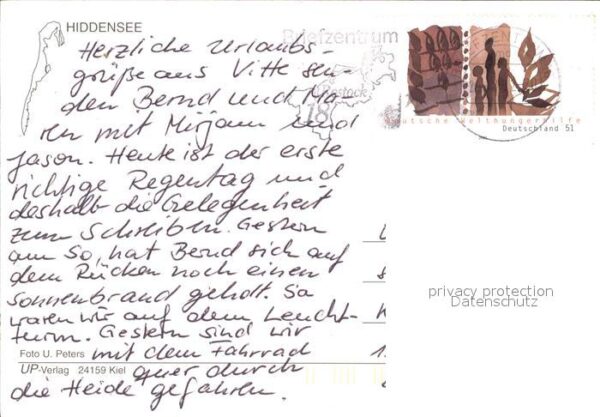 HIDDENSEE
Herzliche Urlaubs-
grüße aus Vitte sen-
den Bernd und Ma-
ren mit Mirjam und
Jason. Heute ist der erste
richtige Regentag und
deshalb die Gelegenheit
zum Schreiben. Gestern
am So, hat Bernd sich auf
dem Rücken noch einen
Sonnenbrand geholt. Sa
waren wir auf dem Leucht-
turm. Gestern sind wir
mit dem Fahrrad
quer durch
die Heide gefahren.
Foto U. Peters
UP-Verlag 24159 Kiel
Briefzentrum
18
Deutsche Welthungerhilfe
Deutschland 51
privacy protection
Datenschutz